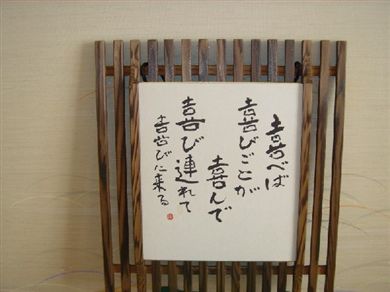 喜べば
喜びごとが
喜んで
喜び連れて
喜びに来る